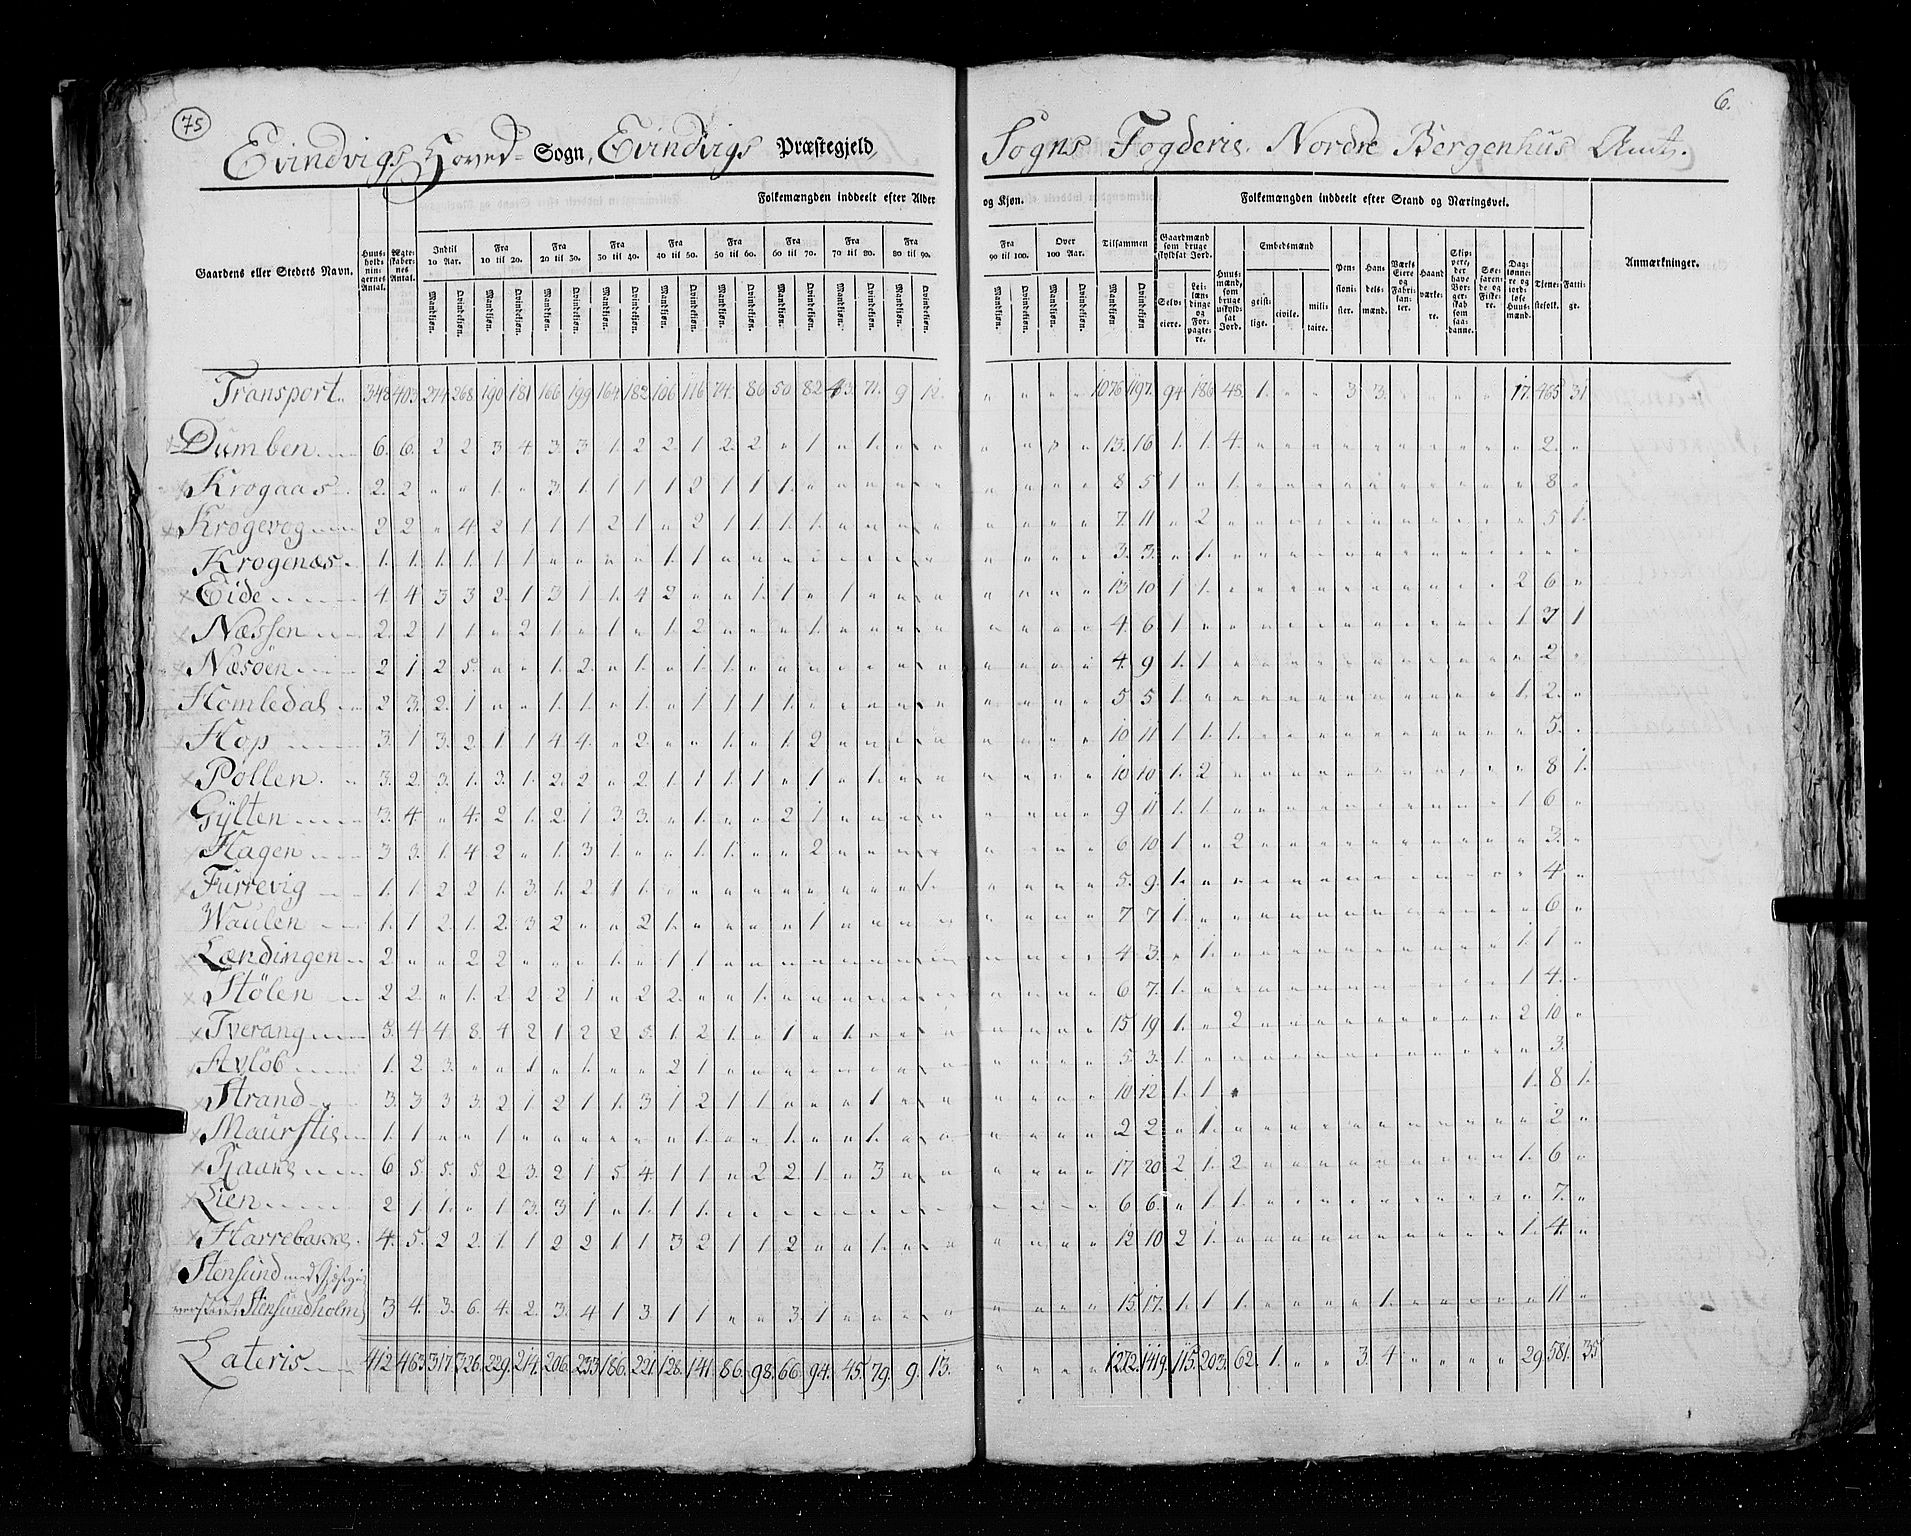 75
6.
Evindvigs Hoved- Sogn, Evindvigs Præstegjeld, Sogns Fogderie, Nordre Bergenhus Amt.
Folkemængden inddeelt efter Alder og Kjøn. Folkemængden inddeelt efter Stand og Næringsvei.
Gaardens eller Stedets Navn. Huus-holdnin-gernes Antal. Ægte-skaber-nes Antal. Indtil 10 Aar. Fra 10 til 20. Fra 20 til 30. Fra 30 til 40. Fra 40 til 50. Fra 50 til 60. Fra 60 til 70. Fra 70 til 80. Fra 80 til 90. Fra 90 til 100. Over 100 Aar. Tilsammen Gaardmænd som bruge skyldsat Jord. Huusmænd, som bruge uskyldsat Jord. Embedsmænd Pensionister. Handelsmænd. Værks Eiere og Fabrikanter. Haandværkere. Skippere, der have Borgerskab som saadanne. Søefarende og Fiskere. Daglønnere og jordløse Huusmænd. Tjenestefolk. Fattige. Anmærkninger.
Mandkjøn. Qvindekjøn. Selveiere. Leilændinge og Forpagtere. geistlige. civile. militaire.
Transport. 348 403 274 268 190 181 166 199 164 182 106 116 74 86 50 82 43 71 9 12 1076 1197 94 186 48 1 3 3 17 465 31
Dumben 6 6 2 2 3 4 3 3 1 2 2 1 2 2 " 1 " 1 13 16 1 1 4 2
Krogaas 2 2 " " 1 " 3 1 1 1 1 2 1 1 1 8 5 1 " 1 8
Krogevog 2 2 " 4 2 1 1 1 2 1 " 2 1 1 1 1 7 11 " 2 5 1
Krogenæs 1 1 1 1 1 1 " " " " 1 1 3 3 " 1
Eide 4 4 3 3 2 1 3 1 1 4 2 " " 1 1 " 1 13 10 1 1 2 6
Næssen 2 2 1 1 " 2 1 " 1 " 1 2 " " " 1 4 6 1 1 3 1
Næsøen 2 1 2 5 " " 1 2 " 1 " 1 1 4 9 1 1 2
Homledal 2 3 2 1 " " 1 1 " 1 " 1 1 1 1 5 5 1 1 2
Hop 3 1 3 2 1 1 4 4 " 2 " " 1 " 1 2 10 11 1 1 1 5
Pollen 3 2 3 1 3 1 2 2 " 2 1 1 1 1 " 1 " 1 10 10 1 2 8 1
Gÿlten 3 4 " 4 2 1 2 1 3 3 " 1 " " 2 1 9 11 1 1 1 6
Hagen 3 3 1 4 2 " 1 3 1 " " 1 1 " " 2 6 10 1 " 2 3
Furrevig 1 1 2 2 1 3 1 2 1 1 " " " " " " " " " 1 5 9 1 4
Waulen 1 1 2 1 2 3 2 " " 2 1 " " " " 1 7 7 1 6
Lændingen 2 " " 2 2 " " " 1 " 1 1 4 3 " 1 1 1
Stölen 2 2 " 1 2 2 2 1 " 2 2 " " 1 6 7 1 1 4
Tverang 5 4 4 8 4 2 1 2 2 3 1 2 1 " 1 " 1 15 19 1 " 2 2 10
Avlöb 1 2 3 " " 1 " 1 " " 2 1 5 3 1 3
Strand 3 3 3 3 2 1 2 1 1 3 1 2 1 1 " " 1 10 12 1 1 1 8 1
Maurstie 1 1 " " 1 " " " " " " 1 " " 1 " " 1 2 2 " 1 2
6 5 5 5 2 3 2 1 5 4 1 1 " 2 2 1 " 3 17 20 2 1 2 1 6
Lien 2 1 1 " 1 3 3 1 " 1 1 1 6 6 " 1 1 7
Harrebakke 4 5 2 2 1 1 2 2 1 1 3 2 1 1 2 " " 1 12 10 2 1 1 4
Stensund med
Stensundholm 3 4 3 6 4 2 3 4 1 3 1 1 " " 3 1 15 17 1 1 1 1 11
Lateris 412 463 317 326 229 214 206 233 186 221 128 141 86 98 66 94 45 79 9 13 1272 1419 115 203 62 1 3 4 29 581 35